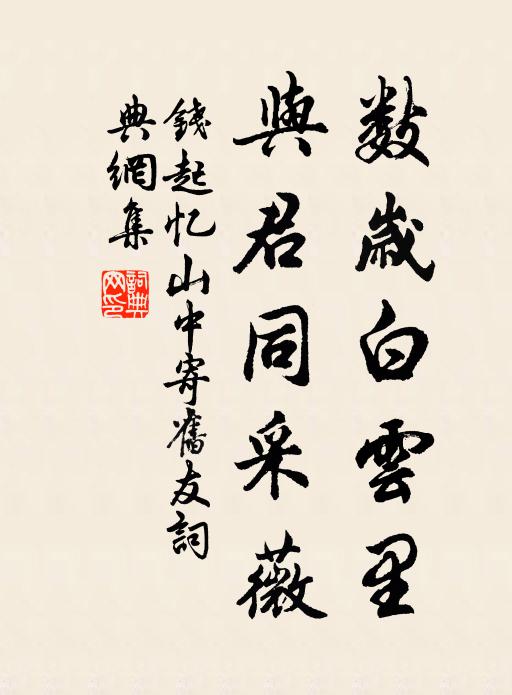 数歲白雲里
與君同采薇
錢起忆山中寄舊友詞
典網集
詞典網印